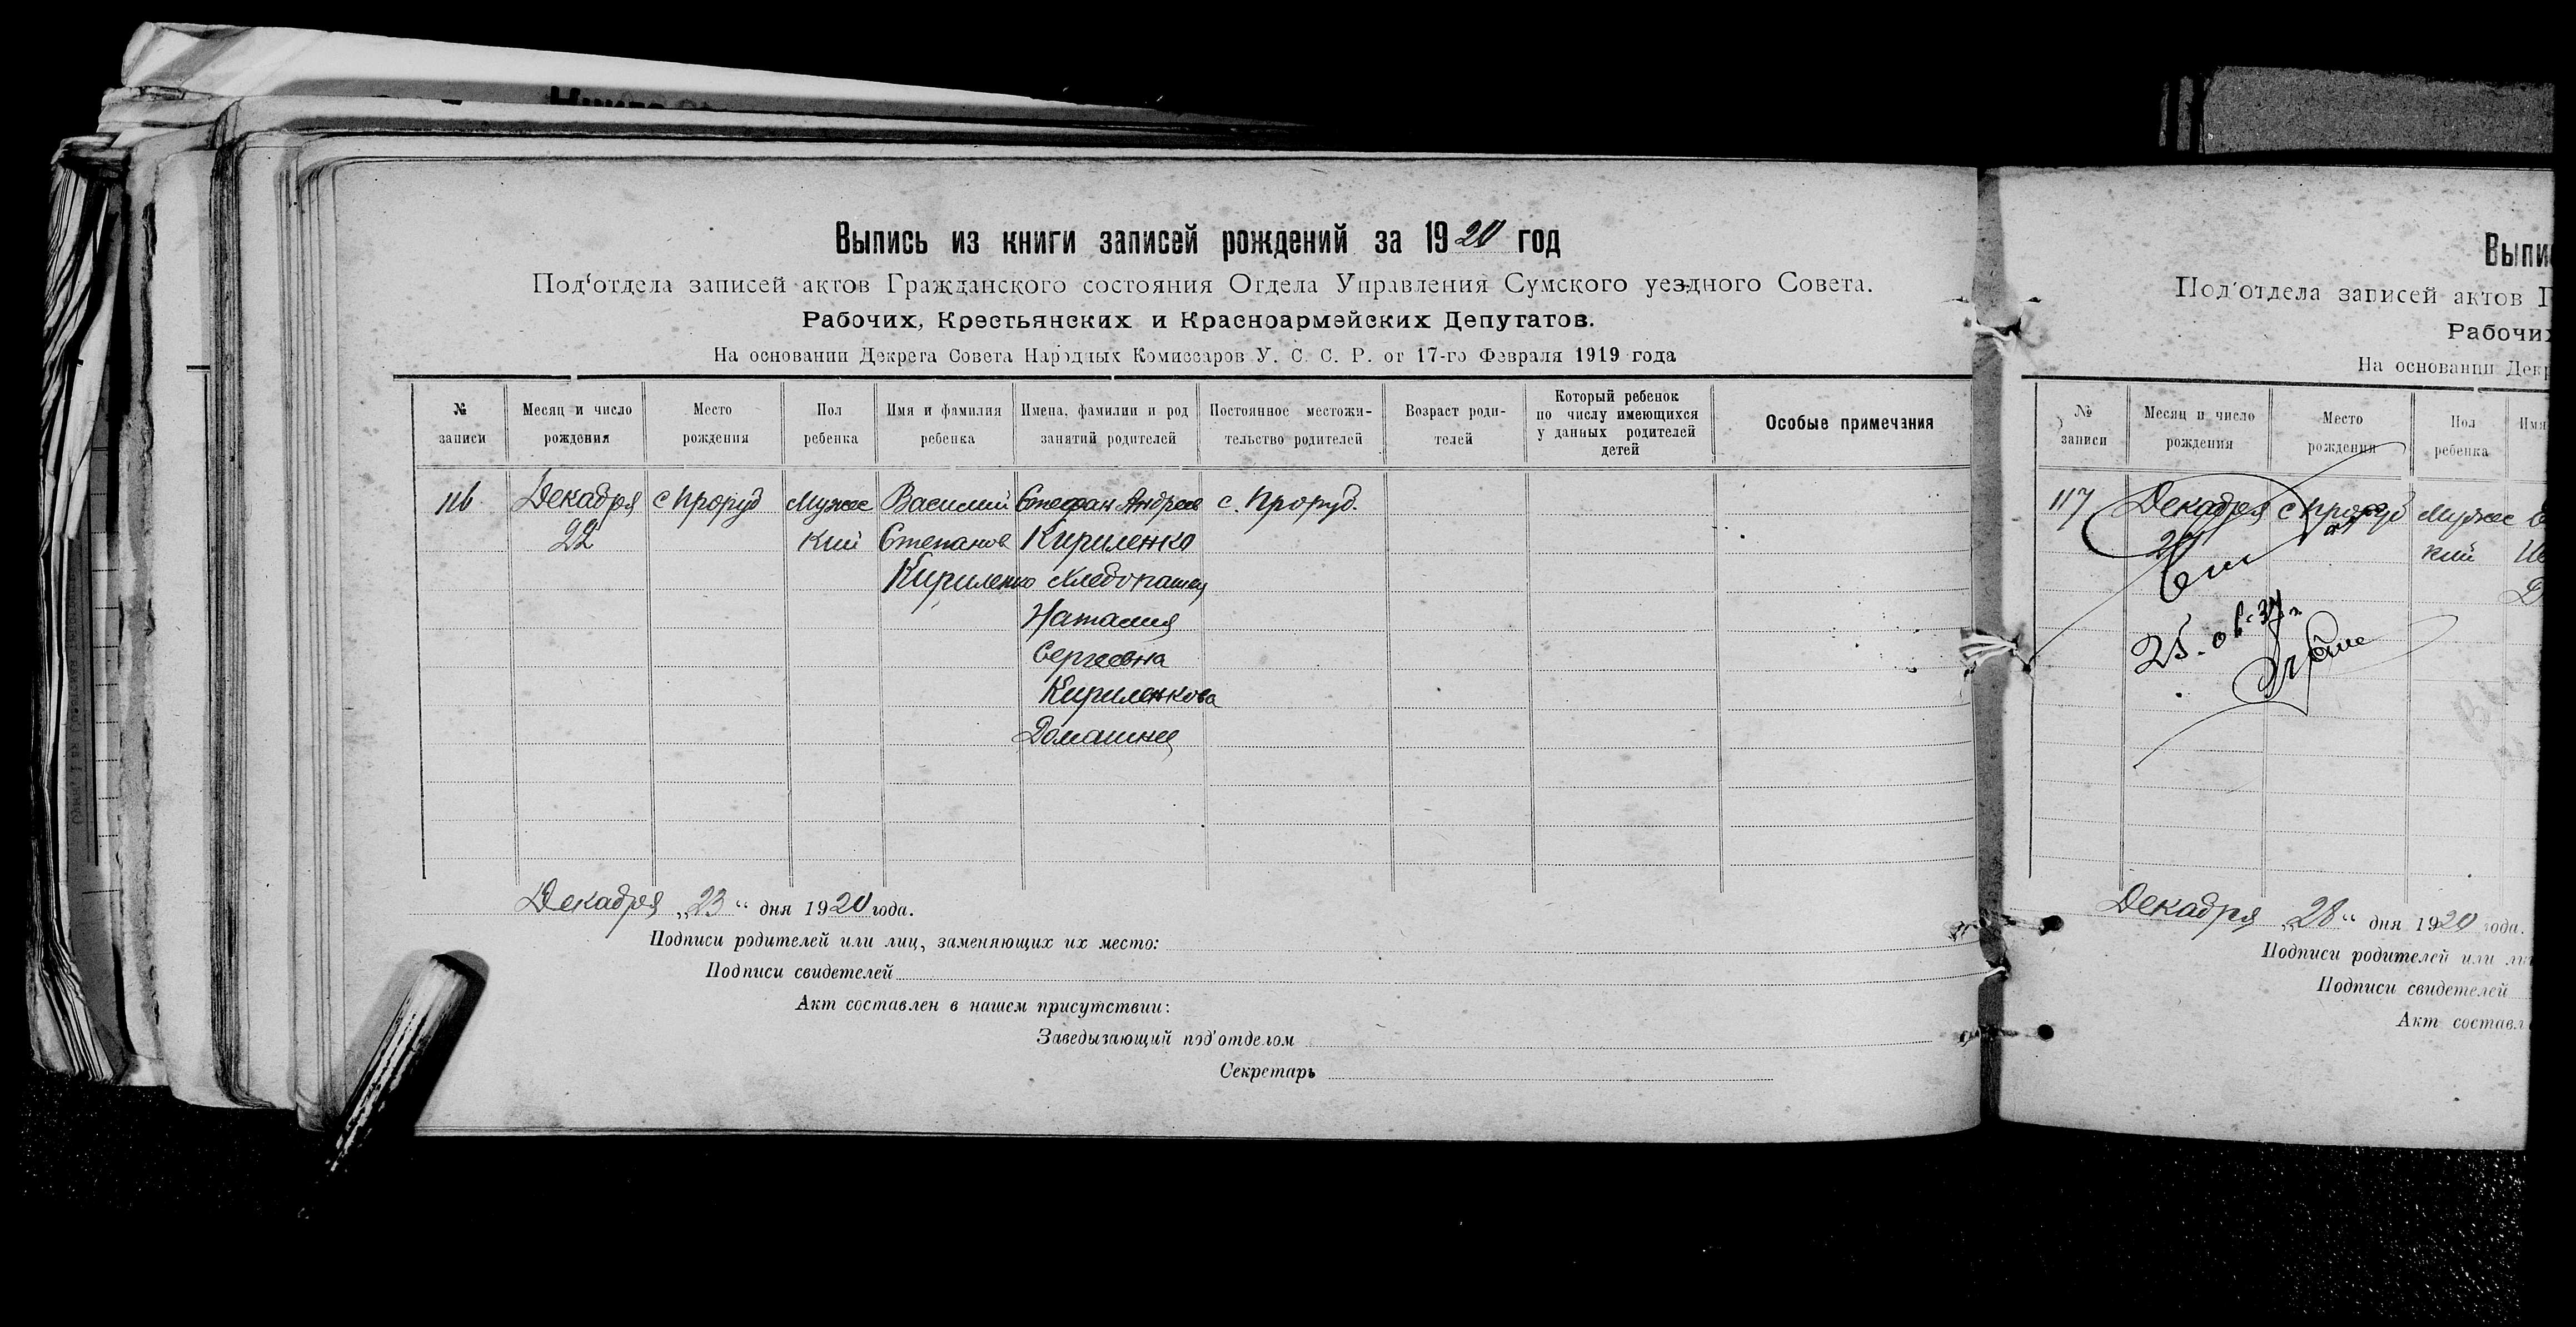 Выпись из книги записей рождений за 1920 год
Под'отдела записей актов Гражданского состояния Отдела Управления Сумского уездного Совета.
Рабочих, Крестьянских и Красноармейских Депутатов.
На основании Декрета Совета Народных Комиссаров У. С. С. Р. от 17-го Февраля 1919 года
№ записи
Месяц и число рождения
Место рождения
Пол ребенка
Имя и фамилия ребенка
Имена, фамилии и род занятий родителей
Постоянное местожительство родителей
Возраст родителей
Который ребенок по числу имеющихся у данных родителей детей
Особые примечания
116 Декабря с Проруб Мужс Василий Стефан Андреев с. Проруб.
22 кий Степанов Кириленко
Кириленко Хлебопашец
Наталия
Сергеевна
Кириленкова
Домашнец
Декабря „23“ дня 1920 года.
Подписи родителей или лиц, заменяющих их место:
Подписи свидетелей
Акт составлен в нашем присутствии:
Заведызающий под'отделом
Секретарь
Выпи
Под'отдела записей актов Г
Рабочих
На основании Декр
№ записи
Месяц и число рождения
Место рождения
Пол ребенка
Имя
117 Декабря с Проруб Мужс
кий
25.
Декабря „28“ дня 1920 года.
Подписи родителей или ли
Подписи свидетелей
Акт составл